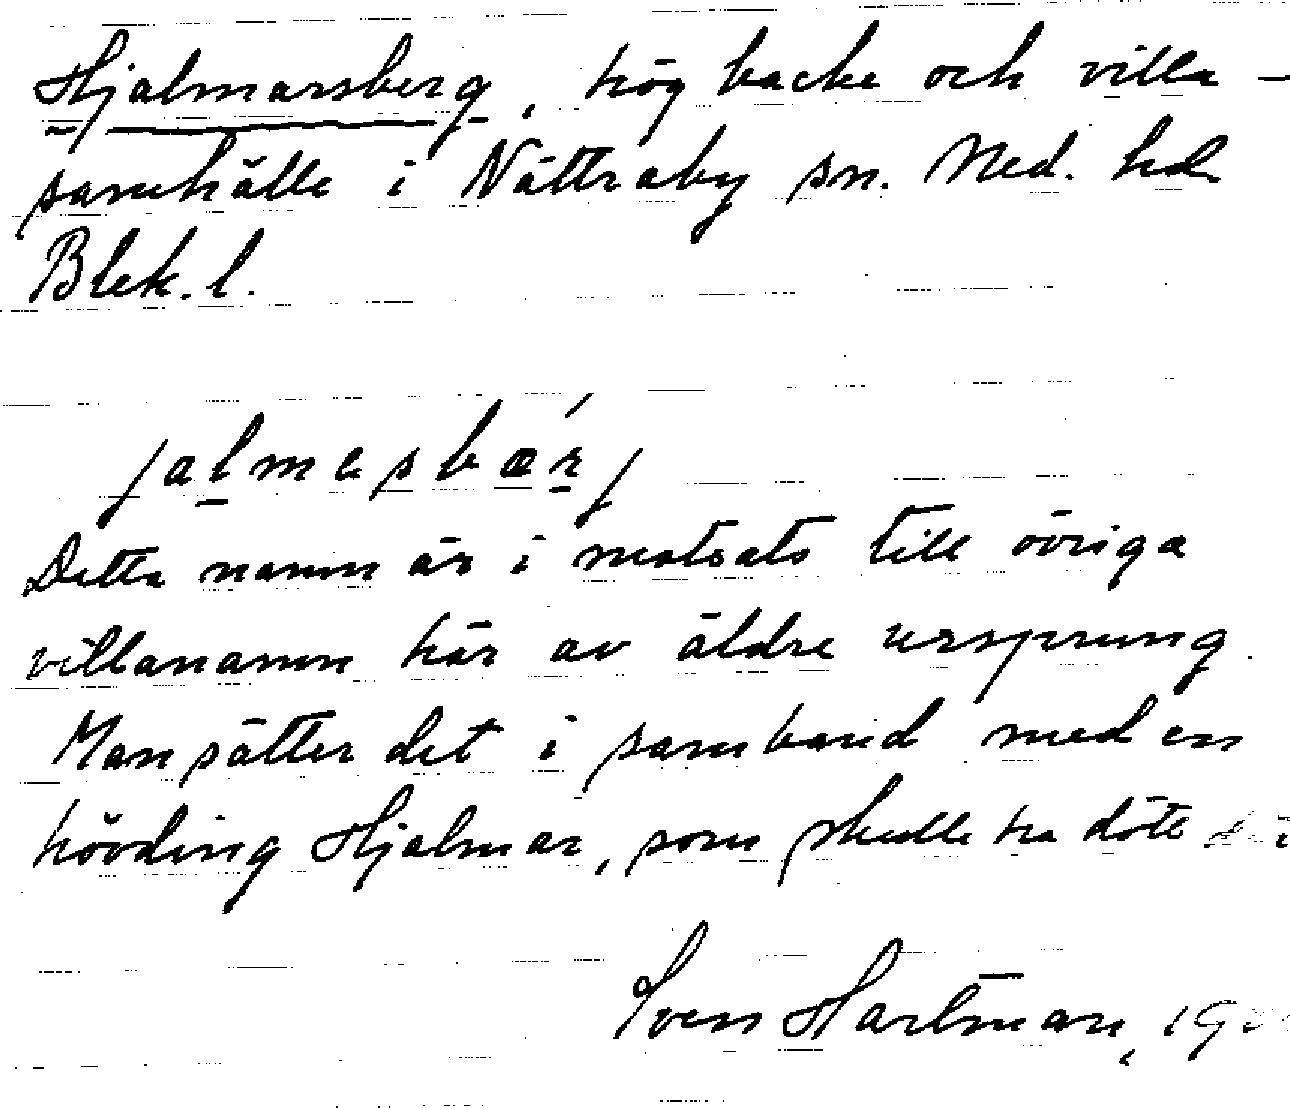 Hjalmarsberg, hög backe och villa-
samhälle i Nättraby sn. Med. hd
Blek. l.
jalmasbærj
Detta namn är i motsats till övriga
villanamn här av äldre ursprung.
Man sätter det i samband med en
hövding Hjalmar, som skulle ha dött
Sven Hartman,